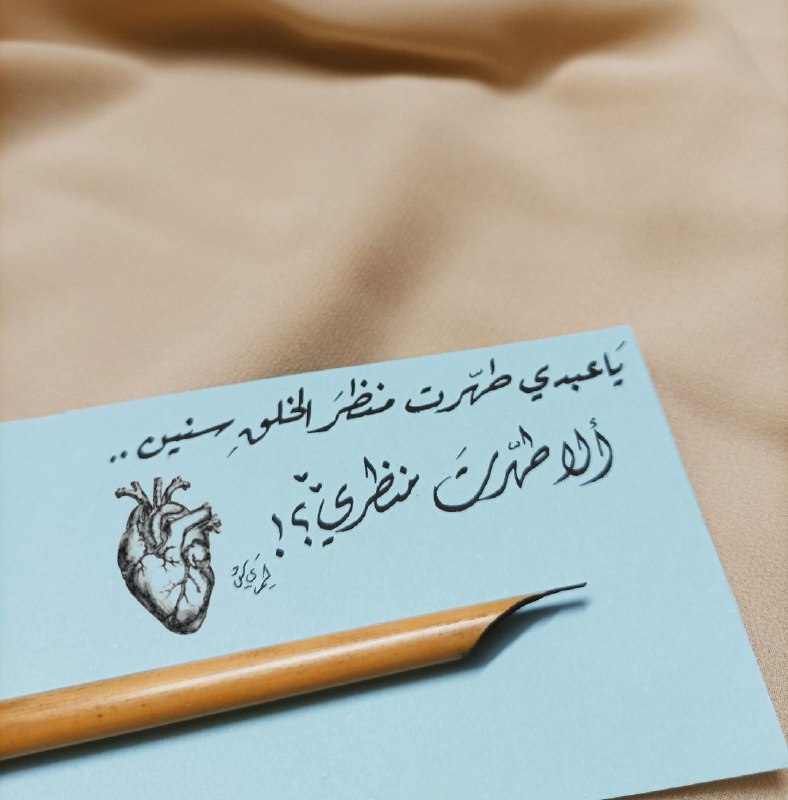 يَا عبدي طهّرت منظرَ الخلقِ سنين ..
ألا طهّرتَ منظري؟!